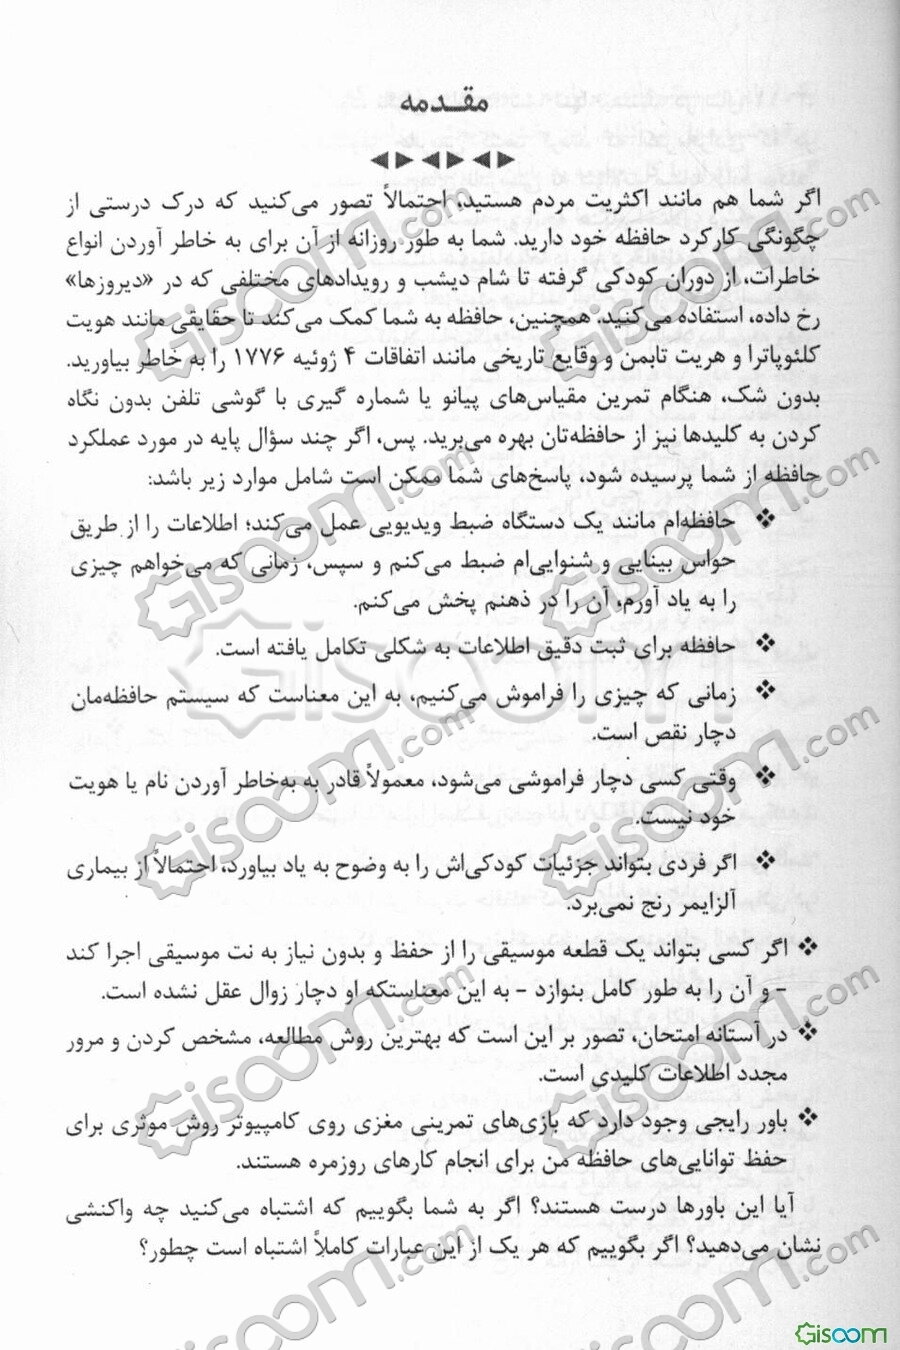 مقـدمه
اگر شما هم مانند اکثریت مردم هستید، احتمالاً تصور می‌کنید که درک درستی از
چگونگی کارکرد حافظه خود دارید. شما به طور روزانه از آن برای به خاطر آوردن انواع
خاطرات، از دوران کودکی گرفته تا شام دیشب و رویدادهای مختلفی که در «دیروزها»
رخ داده، استفاده می‌کنید. همچنین، حافظه به شما کمک می‌کند تا حقایقی مانند هویت
کلئوپاترا و هریت تابمن و وقایع تاریخی مانند اتفاقات ۴ ژوئیه ۱۷۷۶ را به خاطر بیاورید.
بدون شک، هنگام تمرین مقیاس‌های پیانو یا شماره گیری با گوشی تلفن بدون نگاه
کردن به کلیدها نیز از حافظه‌تان بهره می‌برید. پس، اگر چند سؤال پایه در مورد عملکرد
حافظه از شما پرسیده شود، پاسخ‌های شما ممکن است شامل موارد زیر باشد:
❖ حافظه‌ام مانند یک دستگاه ضبط ویدیویی عمل می‌کند؛ اطلاعات را از طریق
حواس بینایی و شنوایی‌ام ضبط می‌کنم و سپس، زمانی که می‌خواهم چیزی
را به یاد آورم، آن را در ذهنم پخش می‌کنم.
❖ حافظه برای ثبت دقیق اطلاعات به شکلی تکامل یافته است.
❖ زمانی که چیزی را فراموش می‌کنیم، به این معناست که سیستم حافظه‌مان
دچار نقص است.
❖ وقتی کسی دچار فراموشی می‌شود، معمولاً قادر به به‌خاطر آوردن نام یا هویت
خود نیست.
❖ اگر فردی بتواند جزئیات کودکی‌اش را به وضوح به یاد بیاورد، احتمالاً از بیماری
آلزایمر رنج نمی‌برد.
❖ اگر کسی بتواند یک قطعه موسیقی را از حفظ و بدون نیاز به نت موسیقی اجرا کند
- و آن را به طور کامل بنوازد - به این معناستکه او دچار زوال عقل نشده است.
❖ در آستانه امتحان، تصور بر این است که بهترین روش مطالعه، مشخص کردن و مرور
مجدد اطلاعات کلیدی است.
❖ باور رایجی وجود دارد که بازی‌های تمرینی مغزی روی کامپیوتر روش موثری برای
حفظ توانایی‌های حافظه من برای انجام کارهای روزمره هستند.
آیا این باورها درست هستند؟ اگر به شما بگوییم که اشتباه می‌کنید چه واکنشی
نشان می‌دهید؟ اگر بگوییم که هر یک از این عبارات کاملاً اشتباه است چطور؟
Gisoom